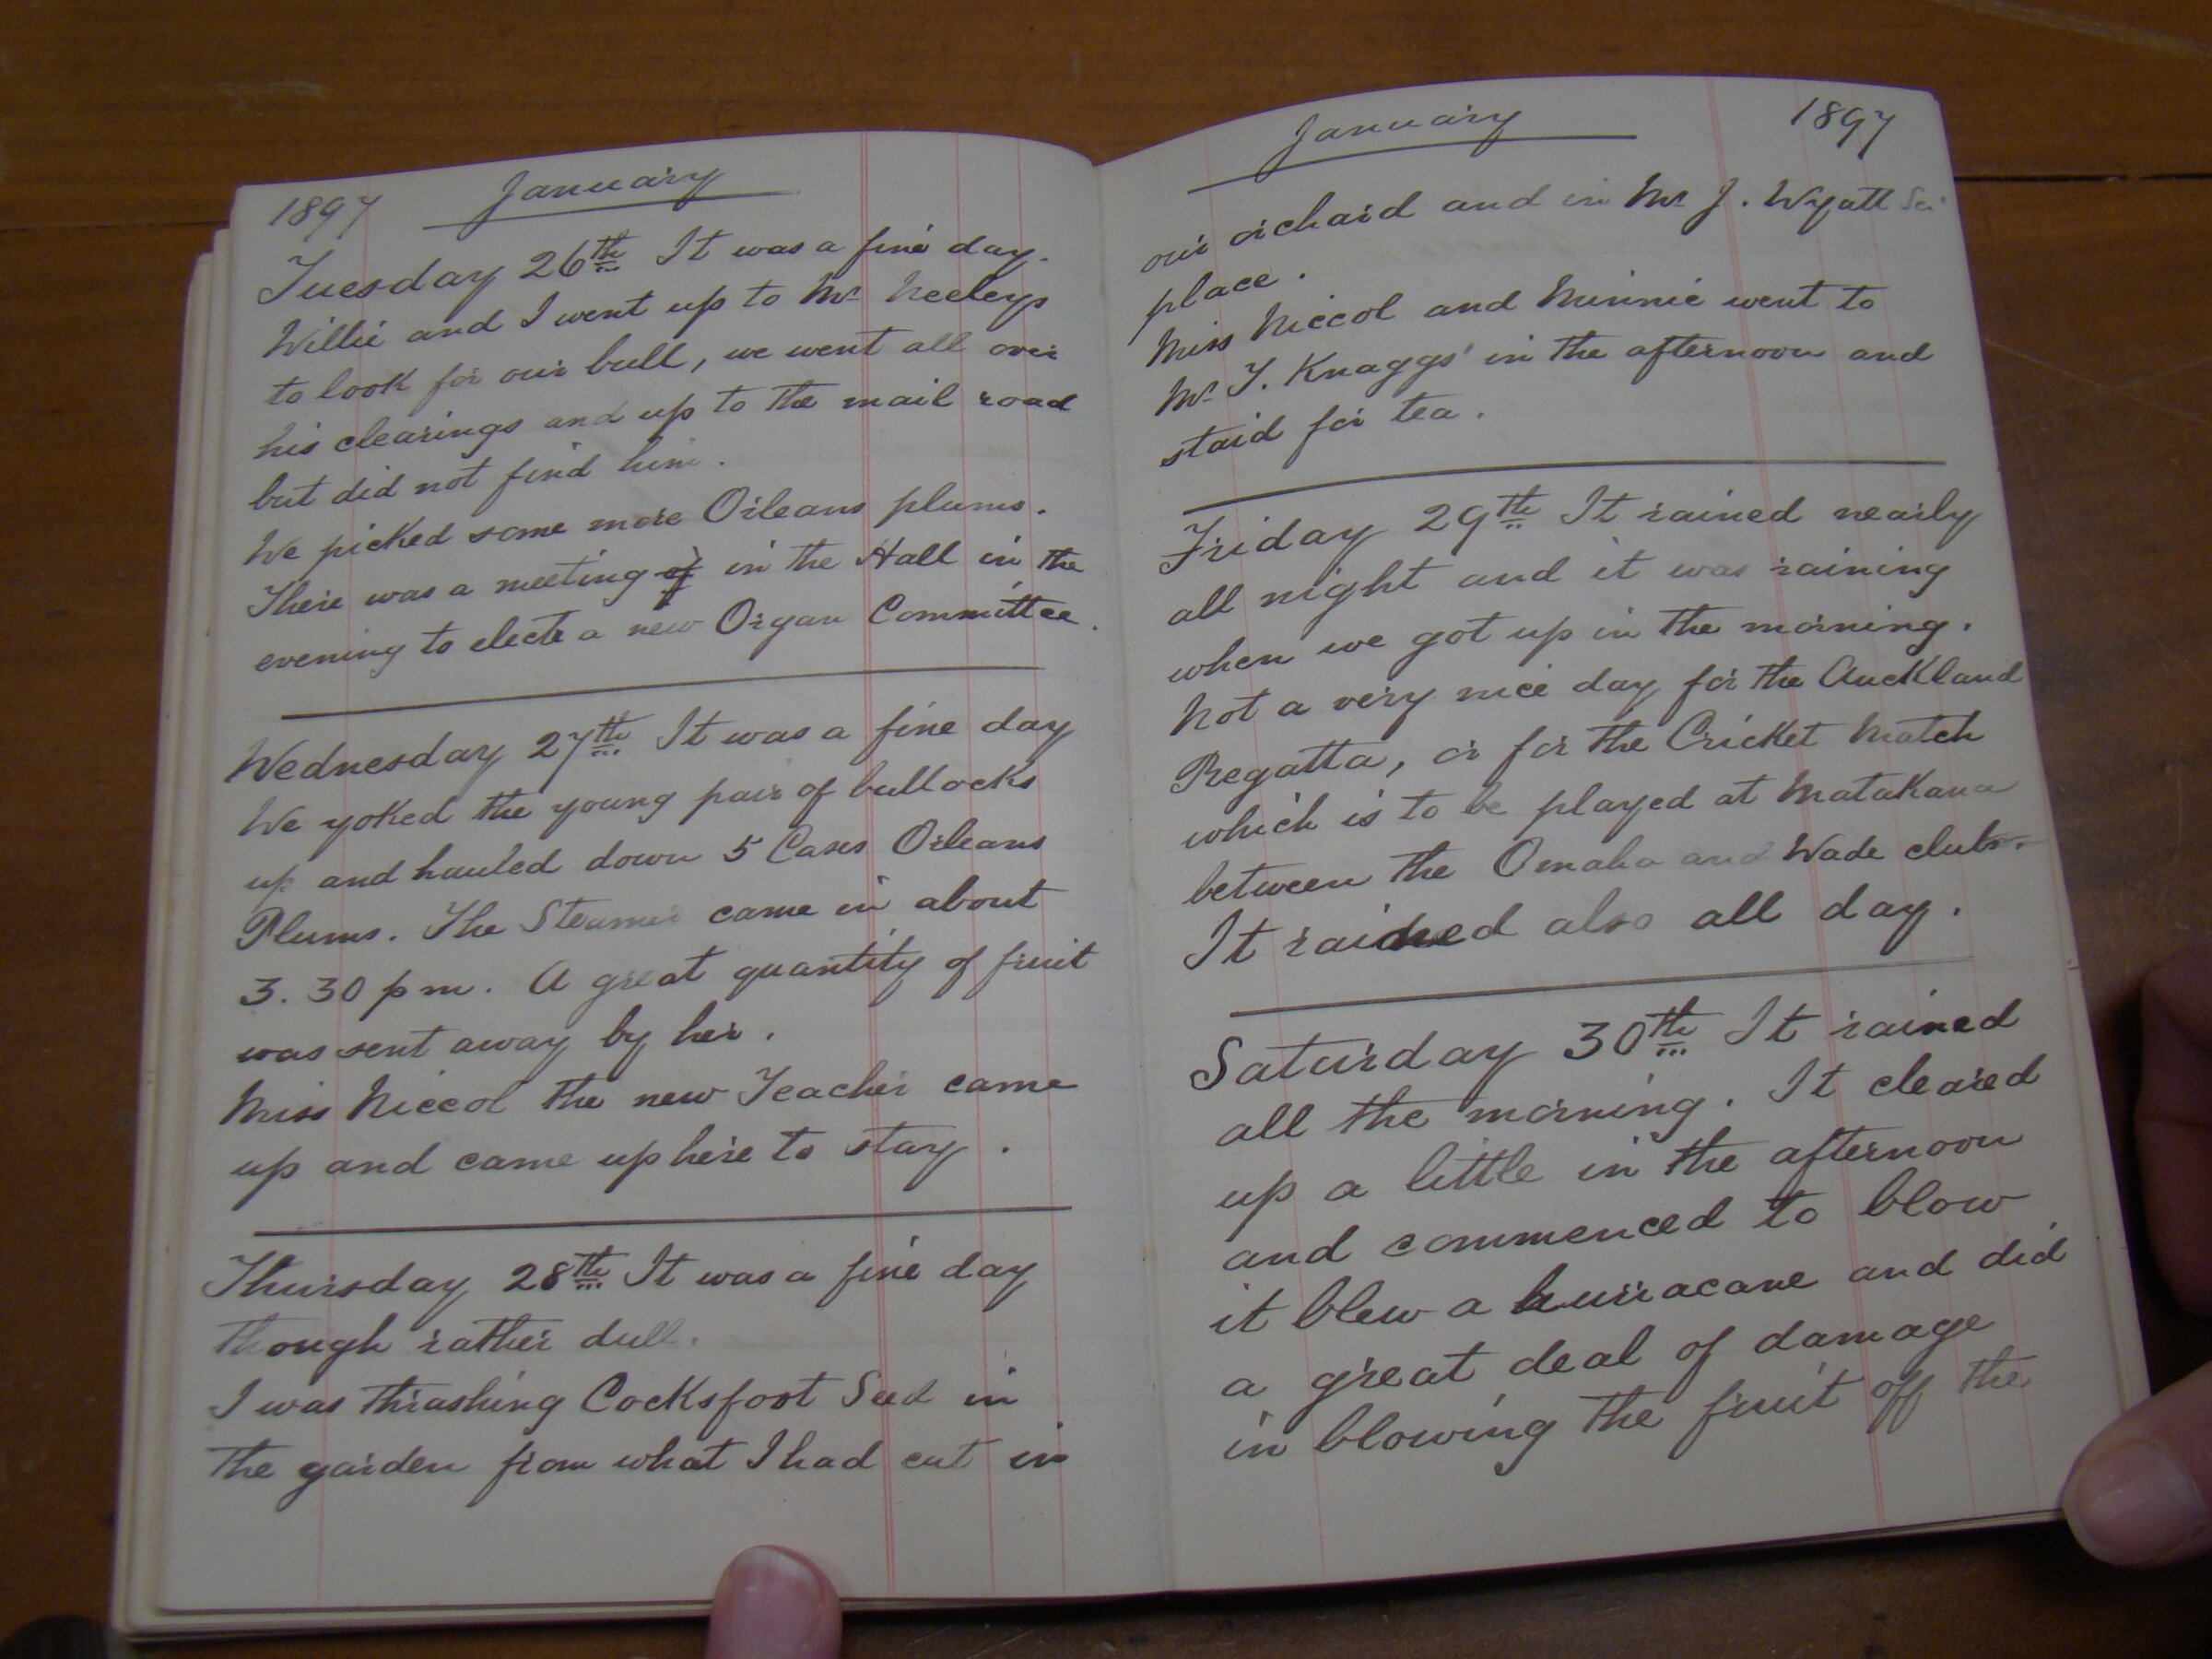 1897 January
Tuesday 26th It was a fine day.
Willie and I went up to Mr Neeleys
to look for our bull, we went all over
his clearings and up to the mail road
but did not find him.
We picked some more Orleans plums.
There was a meeting of in the Hall in the
evening to elect a new Organ Committee.
Wednesday 27th It was a fine day
We yoked the young pair of bullocks
up and hauled down 5 Cases Orleans
Plums. The Steamer came in about
3.30 pm. A great quantity of fruit
was sent away by her.
Miss Niccol the new Teacher came
up and came up here to stay.
Thursday 28th It was a fine day
though rather dull.
I was thrashing Cocksfoot Seed in
the garden from what I had cut in
January 1897
our orchard and in Mr J. Wyatt Sen
place.
Miss Niccol and Minnie went to
Mr T. Knaggs' in the afternoon and
staid for tea.
Friday 29th It rained nearly
all night and it was raining
when we got up in the morning.
Not a very nice day for the Auckland
Regatta, or for the Cricket Match
which is to be played at Matakana
between the Omaha and Wade clubs.
It rained also all day.
Saturday 30th It rained
all the morning. It cleared
up a little in the afternoon
and commenced to blow
it blew a hurracane and did
a great deal of damage
in blowing the fruit off the